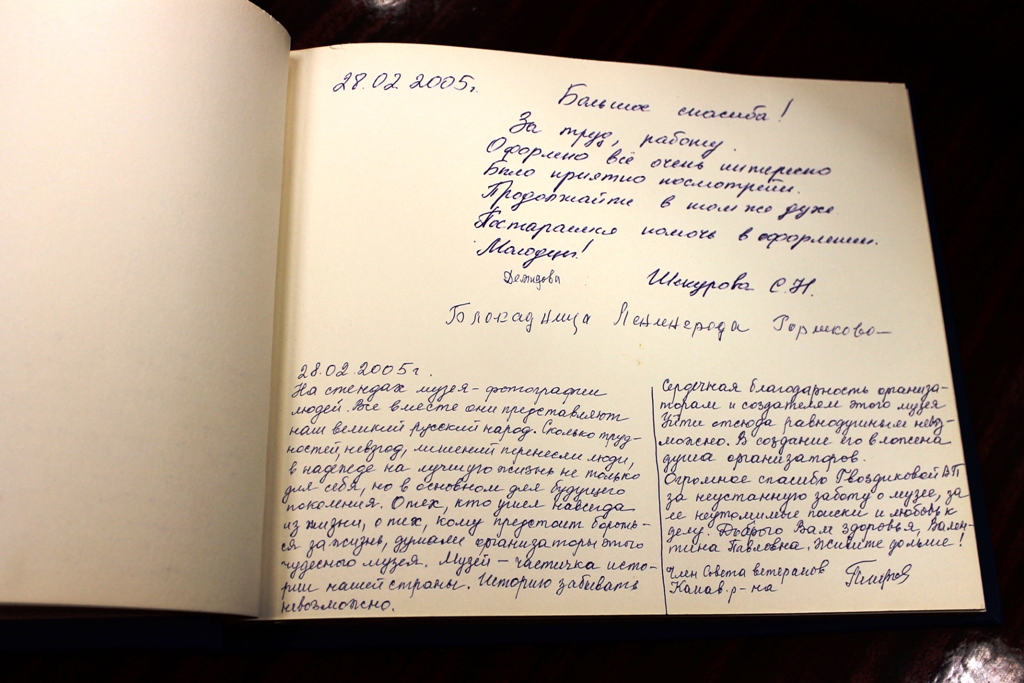 28.02.2005г.
Большое спасибо!
За труд, работу.
Оформлено всё очень интересно
Было приятно посмотреть.
Продолжайте в том же духе
Постараемся помочь в оформлении.
Молодцы!
Демидова Шкурова С.Н.
Блокадница Ленинграда
28.02.2005г.
На стендах музея - фотографии
людей. Все вместе они представляют
наш великий русский народ. Сколько труд-
ностей, невзгод, лишений перенесли люди,
в надежде на лучшую жизнь не только
для себя, но в основном для будущего
поколения. О тех, кто ушел навсегда
из жизни, о тех, кому предстоит бороть-
ся за жизнь, думали организаторы этого
чудесного музея. Музей - частичка исто-
рии нашей страны. Историю забывать
невозможно.
Сердечная благодарность организа-
торам и создателям этого музея
Уйти отсюда равнодушным невоз-
можно. В создание его вложена
душа организаторов.
Огромное спасибо Гвоздиковой ВП
за неустанную заботу о музее, за
ее неутомимые поиски и любовь к
делу. Доброго Вам здоровья, Вален-
тина Павловна. Живите дольше!
Член Совета ветеранов
Канав. р-на